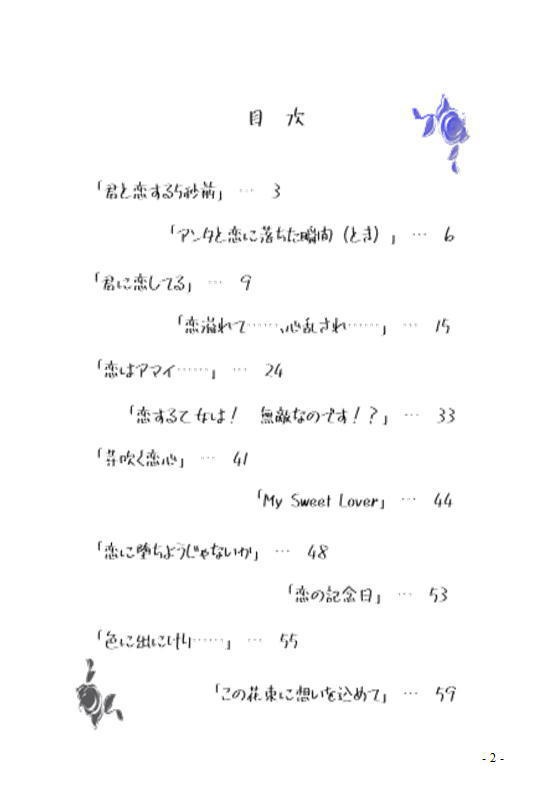 目 次
「君と恋する5秒前」 … 3
「アンタと恋に落ちた瞬間（とき）」 … 6
「君に恋してる」 … 9
「恋溢れて……、心乱され……」 … 15
「恋はアマイ……」 … 24
「恋する乙女は！ 無敵なのです！？」 … 33
「芽吹く恋心」 … 41
「My Sweet Lover」 … 44
「恋に堕ちようじゃないか」 … 48
「恋の記念日」 … 53
「色に出にけり……」 … 55
「この花束に想いを込めて」 … 59
- 2 -